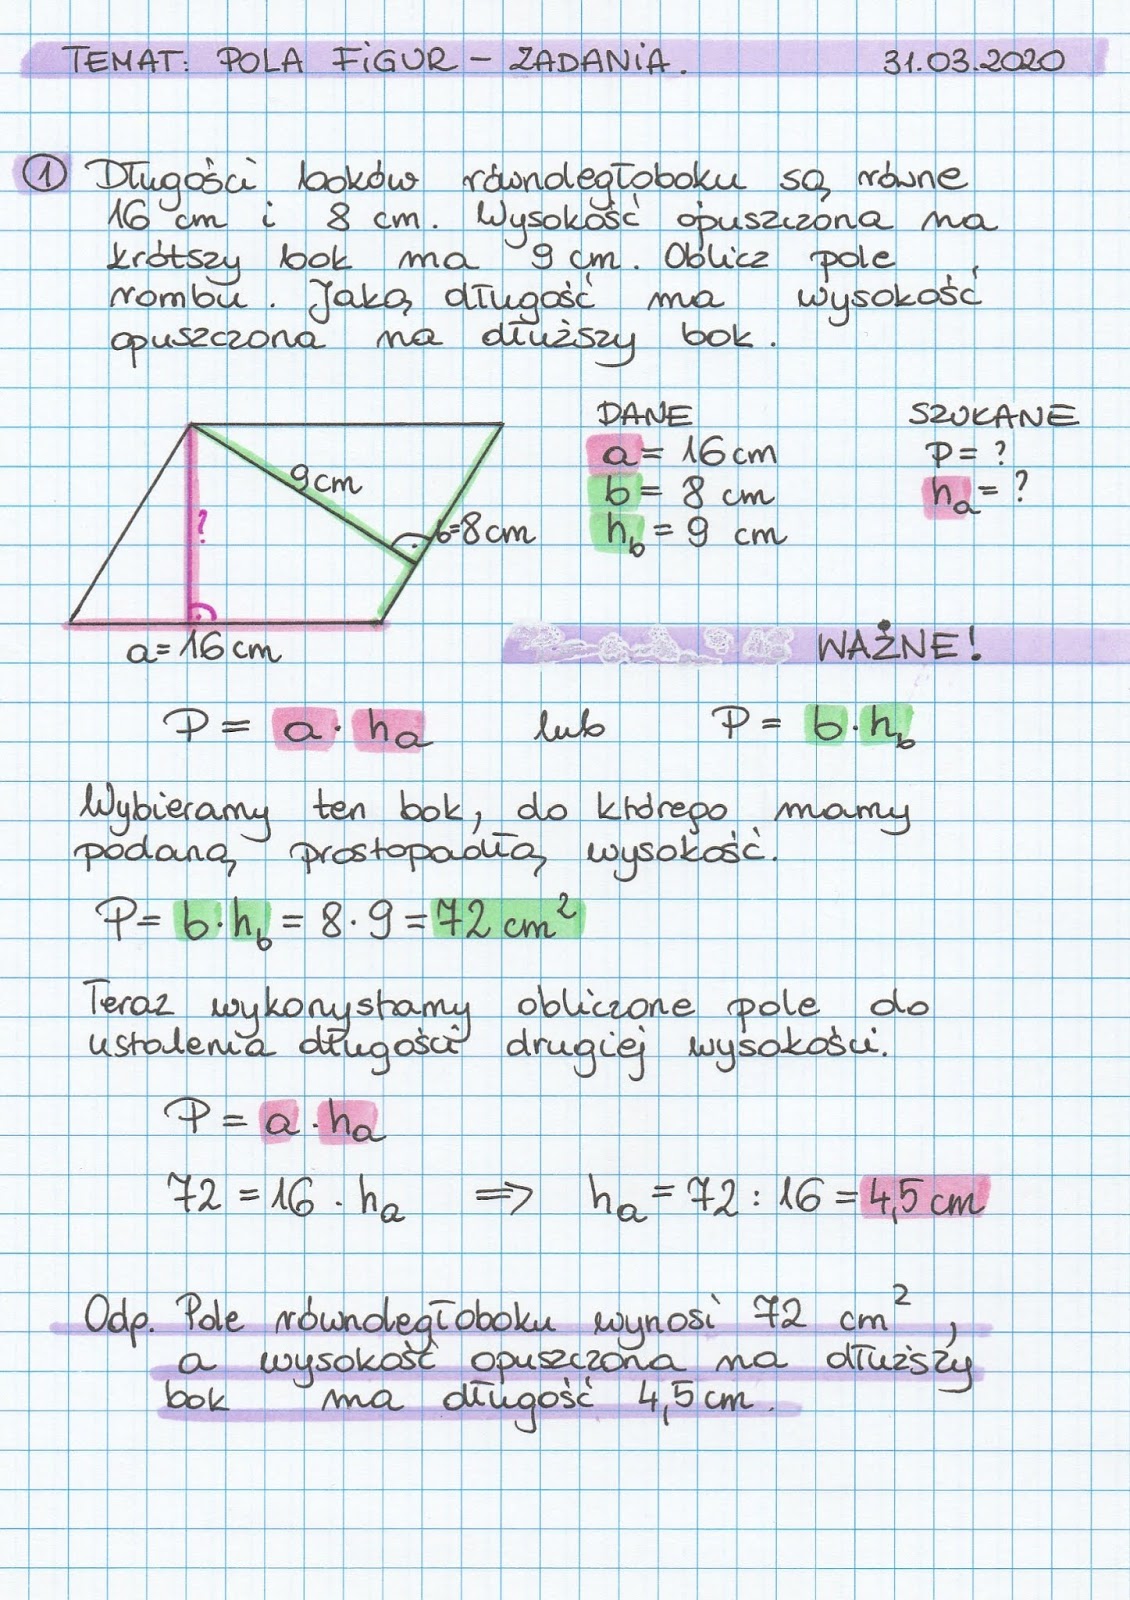 TEMAT: POLA FIGUR – ZADANIA. 31.03.2020
1 Długości boków równoległoboku są równe
16 cm i 8 cm. Wysokość opuszczona na
krótszy bok ma 9 cm. Oblicz pole
rombu. Jaką długość ma wysokość
opuszczona na dłuższy bok.
DANE SZUKANE
a = 16 cm P = ?
b = 8 cm hₐ = ?
h_b = 9 cm
9 cm
?
b=8cm
a=16cm
WAŻNE!
P = a · hₐ lub P = b · h_b
Wybieramy ten bok, do którego mamy
podaną prostopadłą wysokość.
P = b · h_b = 8 · 9 = 72 cm²
Teraz wykorzystamy obliczone pole do
ustalenia długości drugiej wysokości.
P = a · hₐ
72 = 16 · hₐ ⇒ hₐ = 72 : 16 = 4,5 cm
Odp. Pole równoległoboku wynosi 72 cm²,
a wysokość opuszczona na dłuższy
bok ma długość 4,5 cm.